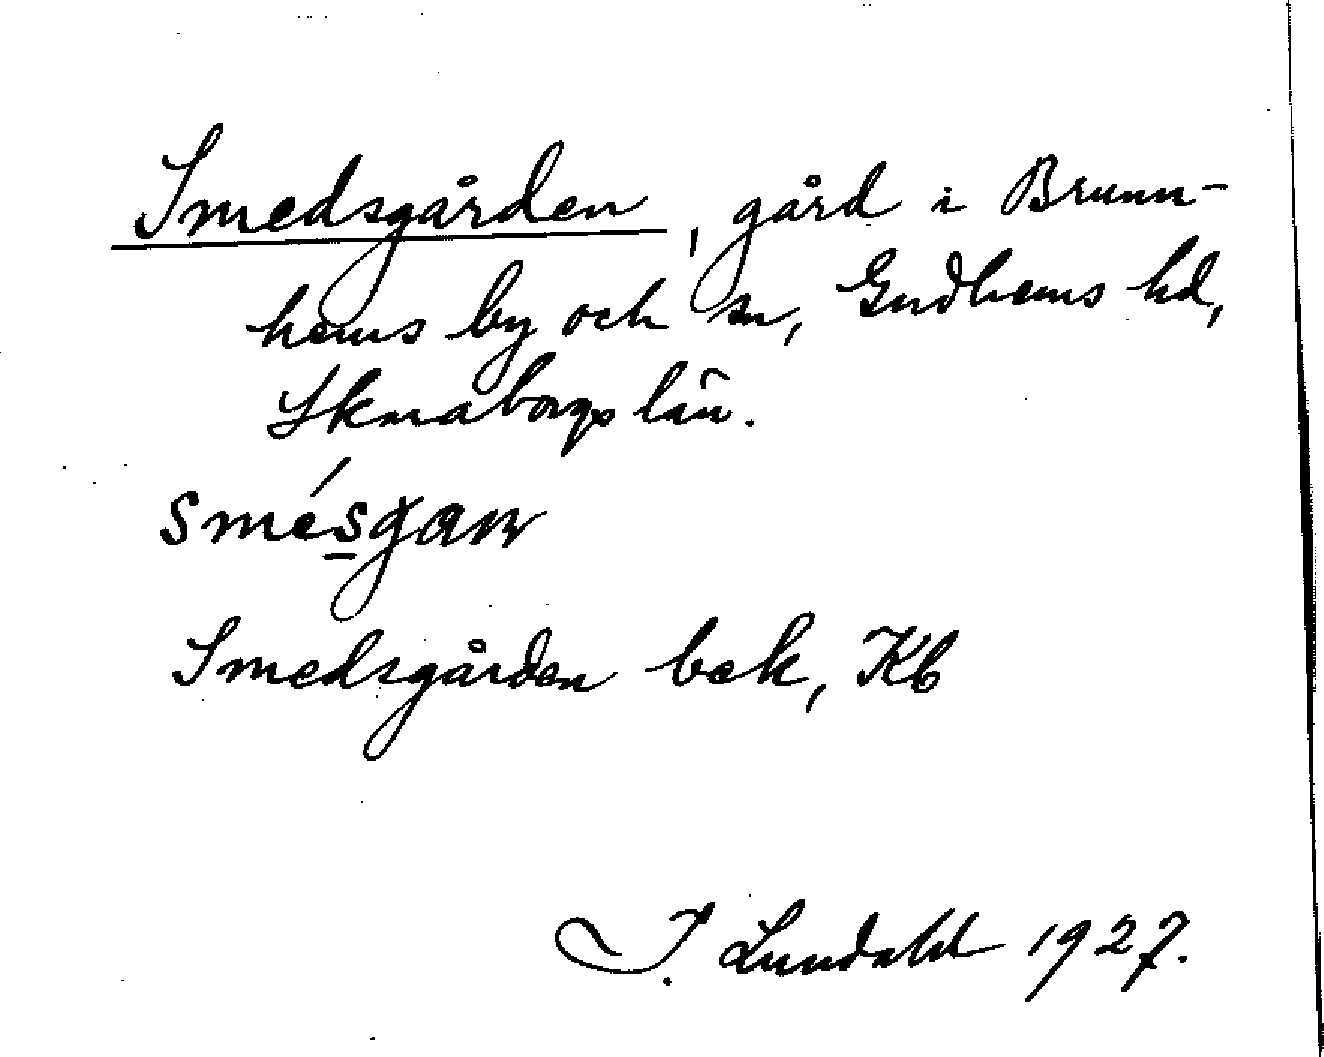 Smedsgården, gård i Brunn-
hems by och sn, Gudhems hd,
Skaraborgs län.
smésgan
Smedsgården bek, Kb
I. Lundahl 1927.